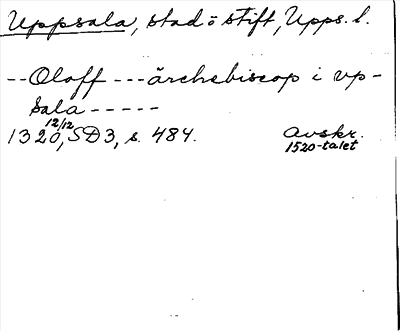 Uppsala, stad o stift, Upps. l.
-- Oloff --- ärchebiscop i vp-
sala -----
12/12
1320, SD3, s. 484. Avskr.
1520-talet